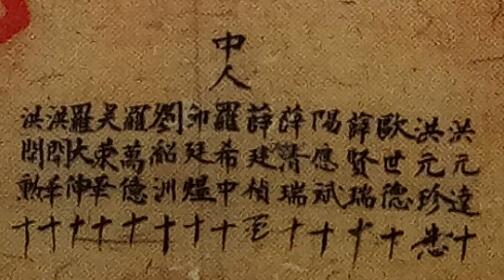 中人
洪元達十
洪元珍
歐世德十
薛賢瑞十
陽應斌十
薛清瑞十
薛建楨
羅希中十
廷熅十
劉紹洲十
羅萬億十
吴荣華十
羅大伸十
洪開華十
洪開勳十